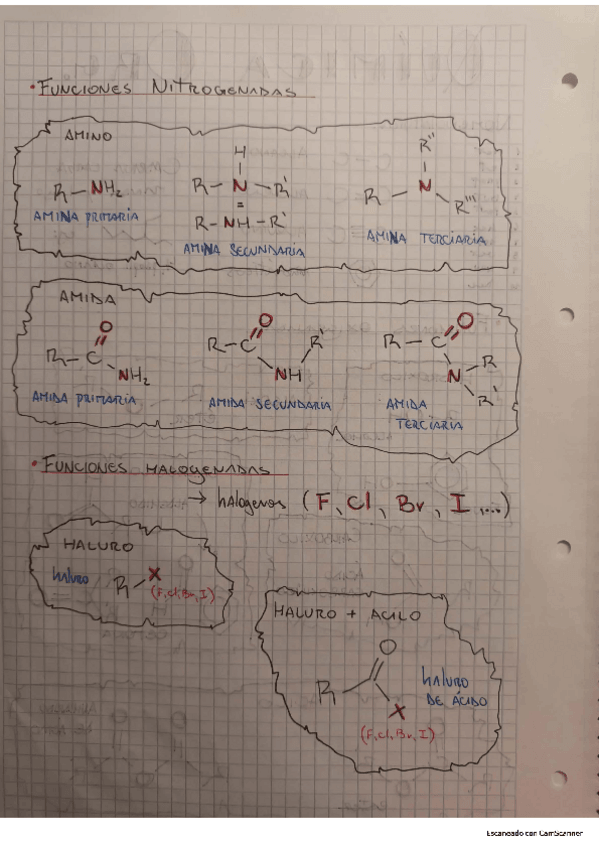 · FUNCIONES NITROGENADAS
AMINO
R-NH₂
AMINA PRIMARIA
H
R-N-R'
=
R-NH-R'
AMINA SECUNDARIA
R''
R N R'''
AMINA TERCIARIA
AMIDA
O
R-C
NH₂
AMIDA PRIMARIA
O
R-C R'
NH
AMIDA SECUNDARIA
O
R-C
N R
R'
AMIDA
TERCIARIA
· FUNCIONES HALOGENADAS
→ halógenos (F, Cl, Br, I,...)
HALURO
haluro R X
(F,Cl,Br,I)
HALURO + ACILO
O
R
X
(F,Cl,Br,I)
haluro
DE ÁCIDO
Escaneado con CamScanner